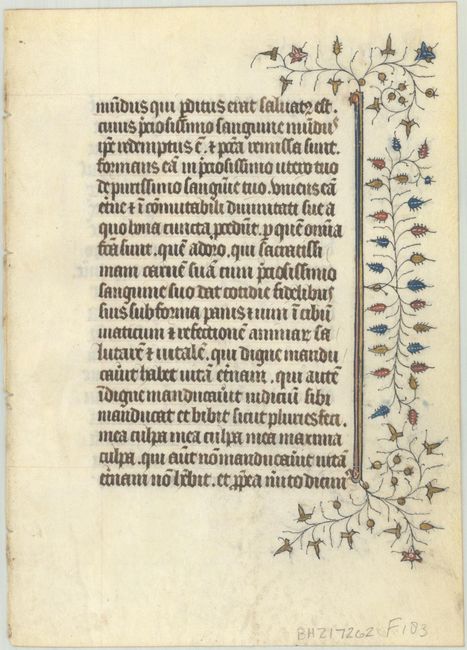 mundus qui pditus erat saluatꝰ est.
cuius p̄ciosissimo sanguine mūdus
ip̄e redemptus ē. ⁊ pc̄ca remissa sunt.
formans eā in p̄ciosissimo utero tuo
de purissimo sanguīe tuo. vniens eā
et̄ne ⁊ ī cōmutabili diuinitati sue a
quo bona cuncta p̄cedūt. p quē om̄ia
fc̄a sunt. quē adoro. qui sacratissi
mam carnē suā cum p̄ciosissimo
sanguine suo dat cotidie fidelibus
suis sub forma panis ⁊ uini ī cibū
uiaticum ⁊ refectionē animaꝝ sa
lutarē ⁊ uitalē. qui digne mandu
cauūt habet uitā et̄nam. qui autē
īdigne manducauūt iudiciū sibi
manducat et bibīt sicut pluries feci.
mea culpa mea culpa mea maxima
culpa. qui aūt nō manducauūt uitā
et̄nam nō hēbūt. et pp̄ea dicim
BHZ17262 F103